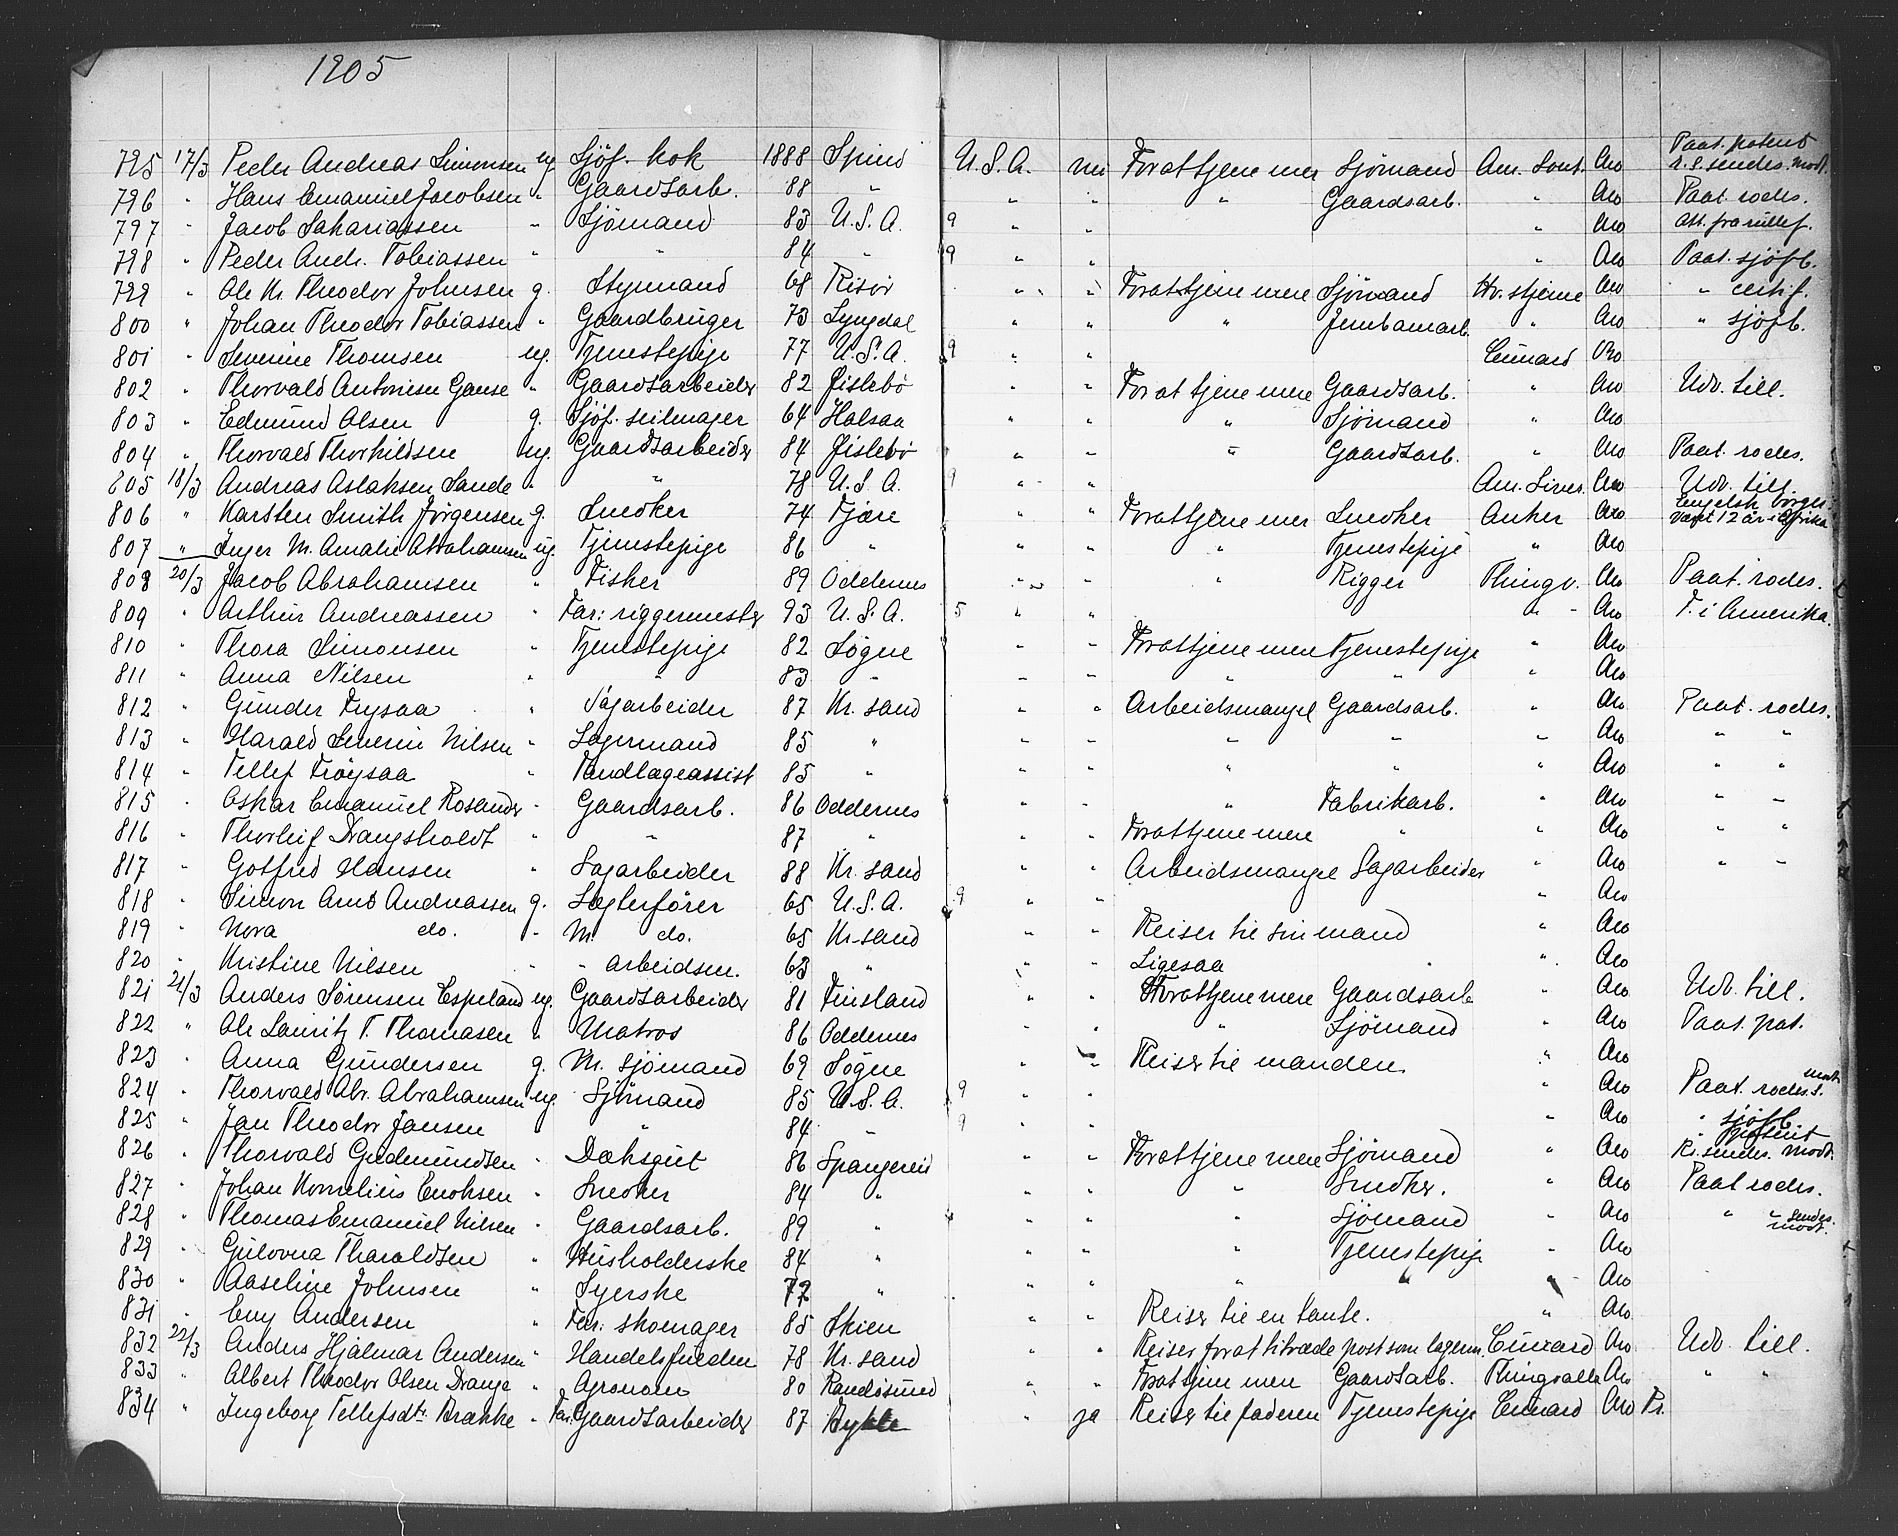 1905
795 17/3 Peder Andreas Simonsen ug. Sjöf. kok 1888 Spind U.S.A. nei Forattjene mer Sjömand Am. Aro Paat. patent r. s. sendes. modt.
796 " Hans Emanuel Jacobsen " Gaardsarb. 88 " " " " Gaardsarb. " Aro Paat. rodes.
797 " Jacob Sakariassen " Sjömand 83 U.S.A. 9 " " " Aro
798 " Peder Andr. Tobiassen " " 84 " 9 " " " Aro Paat. sjöfb.
799 " Ole Kr. Theodor Johnsen g. Styrmand 68 Risör " " Forattjene mere Sjömand Hv. stjerne Aro " certif.
800 " Johan Theodor Tobiassen " Gaardbruger 73 Lyngdal " " " Jernbanarb. " Aro " sjöfb.
801 " Severine Thomsen ug. Tjenestepige 77 U.S.A. 9 " " Cunard Aro
802 " Thorvald Antonisen Ganse " Gaardsarbeider 82 Fislebö " " Forat tjene mere Gaardsarb. " Aro Udv. till.
803 " Edmund Olsen g. Sjöf. seilmager 64 Halsaa " " " Sjömand " Aro
804 " Thorvald Thorkildsen ug. Gaardsarbeider 84 Fislebö " " " Gaardsarb. " Aro Paat. rodes.
805 18/3 Andreas Aslaksen Sande " " 78 U.S.A. 9 " " Am. Liver. Aro Udv. till.
806 " Karsten Smith Jörgensen g. Snedker 74 Fjære " " Forattjene mer Snedker Anker Aro Engelsk borger. Været 12 år i Afrika
807 " Inger M. Amalie Abrahamsen ug. Tjenestepige 86 " " " " Tjenestepige " Aro
808 20/3 Jacob Abrahamsen " Fisker 89 Oddernes " " " Rigger Thingv. Aro Paat. rodes.
809 " Arthur Andreassen " Far: riggermester 93 U.S.A. 5 " " " Aro F. i Amerika.
810 " Thora Simonsen " Tjenestepige 82 Søgne " " Forattjene mere Tjenestepige " Aro
811 " Anna Nilsen " " 83 " " " " " " Aro
812 " Gunder Frysaa " Sagarbeider 87 Kr. sand " " Arbeidsmangel Gaardsarb. " Aro Paat. rodes.
813 " Harald Severin Nilsen " Lagermand 85 " " " " " " Aro " "
814 " Tellef Fröysaa " Tandlægeassist 85 " " " " " " Aro " "
815 " Oskar Emanuel Rosander " Gaardsarb. 86 Oddernes " " " Fabrikarb. " Aro " "
816 " Thorleif Drangsholdt " " 87 " " " Forattjene mere " " Aro " "
817 " Gotfred Hansen " Sagarbeider 88 Kr. sand " " Arbeidsmangel Sagarbeider " Aro " "
818 " Simon Arnt Andreassen g. Lægterförer 65 U.S.A. 9 " " " Aro
819 " Nora do. " M. do. 65 Kr. sand " " Reiser til sin mand " Aro
820 " Kristine Nilsen " " arbeidsm. 63 " " " Ligesaa " " Aro
821 21/3 Anders Sørensen Espeland ug. Gaardsarbeider 81 Finsland " " Forattjene mere Gaardsarb " Aro Udv. till.
822 " Ole Lauritz T. Thomasen " Matros 86 Oddernes " " " Sjömand " Aro Paat. pat.
823 " Anna Gundersen g. M. sjömand 69 Søgne " " Reiser til manden. " Aro
824 " Thorvald Abr. Abrahamsen ug. Sjömand 85 U.S.A. 9 " " " Aro Paat. rodes. s. modt.
825 " Jan Theodor Jansen " " 84 " 9 " " " Aro " sjöfb.
826 " Thorvald Gudmundsen " Dæksgut 86 Spangereid " " Forattjene mere Sjömand " Aro R. sendes. modt.
827 " Johan Kornelius Enoksen " Snedker 84 " " " " Snedker. " Aro Paat rodes.
828 " Thomas Emanuel Nilsen " Gaardsarb. 89 " " " " Sjömand " Aro " " sendes. modt.
829 " Gulovna Tharaldsen " Husholderske 84 " " " " Tjenestepige " Aro
830 " Aaseline Johnsen " Syerske 72 " " " " " " Aro
831 " Eny Andersen " Far: skomager 85 Skien " " Reiser til en tante. " Aro
832 22/3 Anders Hjalmar Andersen " Handelsfuldm 78 Kr. sand " " Reiser forat tiltræde post som lagerm. Cunard Aro Udv. till.
833 " Albert Theodor Olsen Drange " Agronom 80 Randösund " " Forattjene mere Gaardsarb. Thingvalla Aro " "
834 " Ingeborg Tellefsdt. Brække " Far. Gaardsarbeider 87 Bykle " ja Reiser til faderen Tjenestepige Cunard Aro Pr.